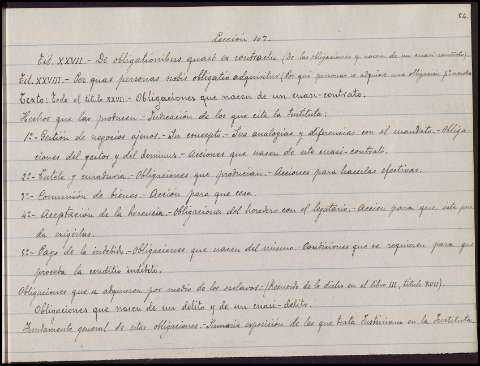 84.
Leccion 107.
Tit. XXVII.- De obligationibus quasi ex contractu (De las obligaciones q. nacen de un cuasi-contrato).
Tit. XXVIII.- Per quas personas nobis obligatio adquiritur (Por qué personas se adquiere una obligacion pª nosotros
Texto: Todo el titulo XXVII.- Obligaciones que nacen de un cuasi-contrato.
Hechos que las producen.- Indicacion de los que cita la Instituta:
1º- Gestión de negocios ajenos.- Su concepto.- Sus analogias y diferencias con el mandato.- Obliga-
ciones del gestor y del dominus.- Acciones que nacen de este cuasi-contrato.
2º- Tutela y curaduria.- Obligaciones que producian.- Acciones para hacerlas efectivas.
3º- Comunión de bienes.- Acción para que cese.
4º- Aceptacion de la herencia.- Obligaciones del heredero con el legatario.- Accion para que este pue-
da exigirlas.
5º- Pago de lo indebido.- Obligaciones que nacen del mismo.- Condiciones que se requieren para que
proceda la conditio indebiti.
Obligaciones que se adquieren por medio de los esclavos.- (Recuerdo de lo dicho en el libro III, titulo XVII).
Obligaciones que nacen de un delito y de un cuasi-delito.
Fundamento general de estas obligaciones.- Sumaria exposicion de las que trata Justiniano en la Instituta.